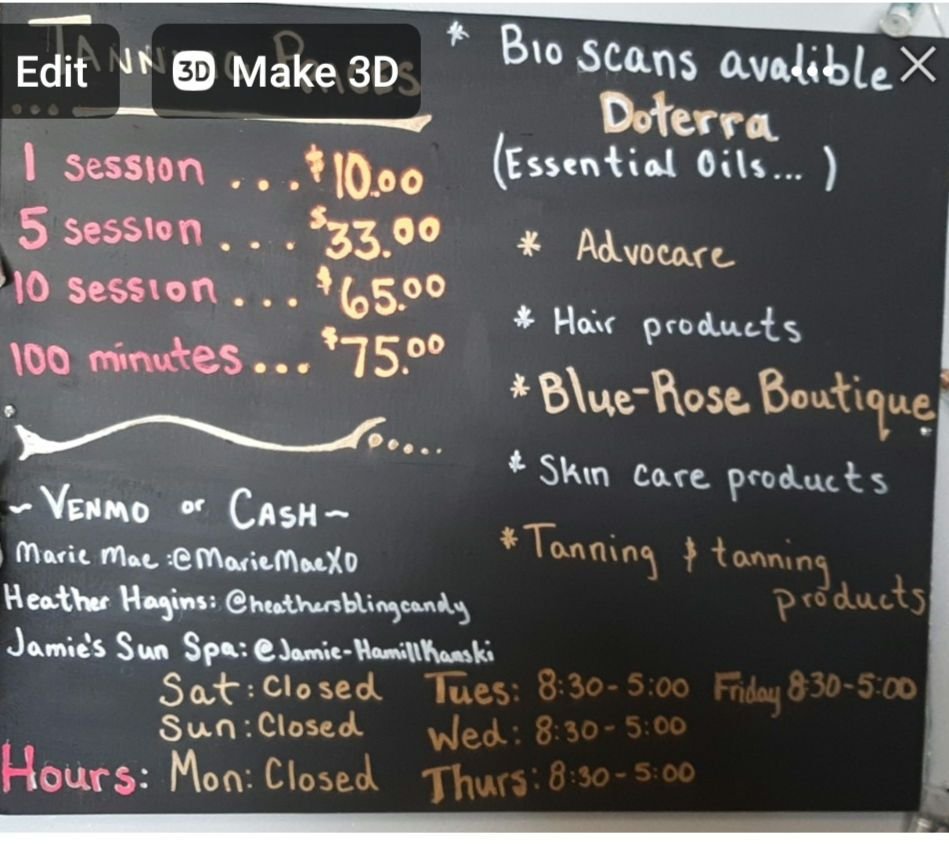 Edit
3D Make 3D
1 session ... $10.00
5 session ... $33.00
10 session ... $65.00
100 minutes ... $75.00
~ VENMO or CASH ~
Marie Mae :@MarieMaeXO
Heather Hagins: @heathersblingcandy
Jamie's Sun Spa: @Jamie-HamillKamski
* Bio scans avalible
Doterra
(Essential Oils... )
* Advocare
* Hair products
* Blue-Rose Boutique
* Skin care products
* Tanning & tanning
products
Sat: Closed Tues: 8:30-5:00 Friday 8:30-5:00
Sun: Closed Wed: 8:30-5:00
Hours: Mon: Closed Thurs: 8:30-5:00